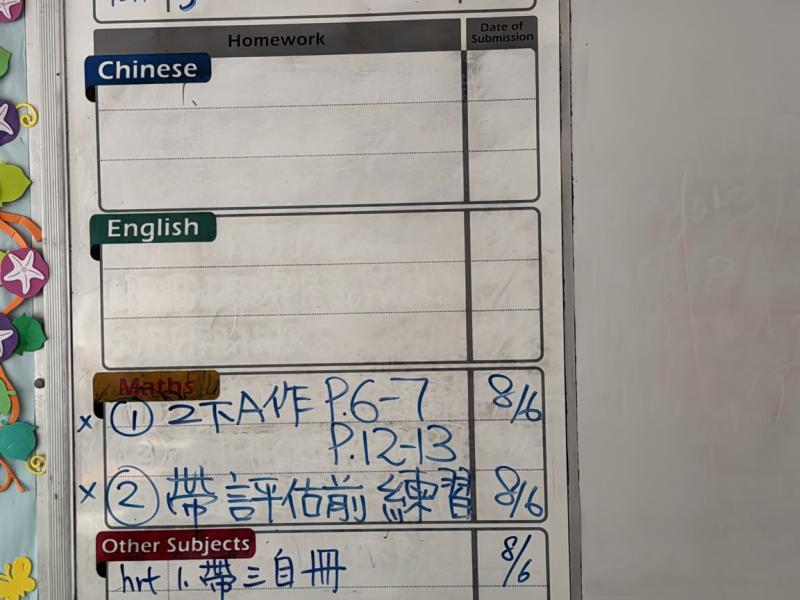 Homework
Date of
Submission
Chinese
English
Maths
x ① 2下A作 P.6-7 8/6
P.12-13
x ② 帶評估前練習 8/6
Other Subjects
hrt 1. 帶三自冊 8/6